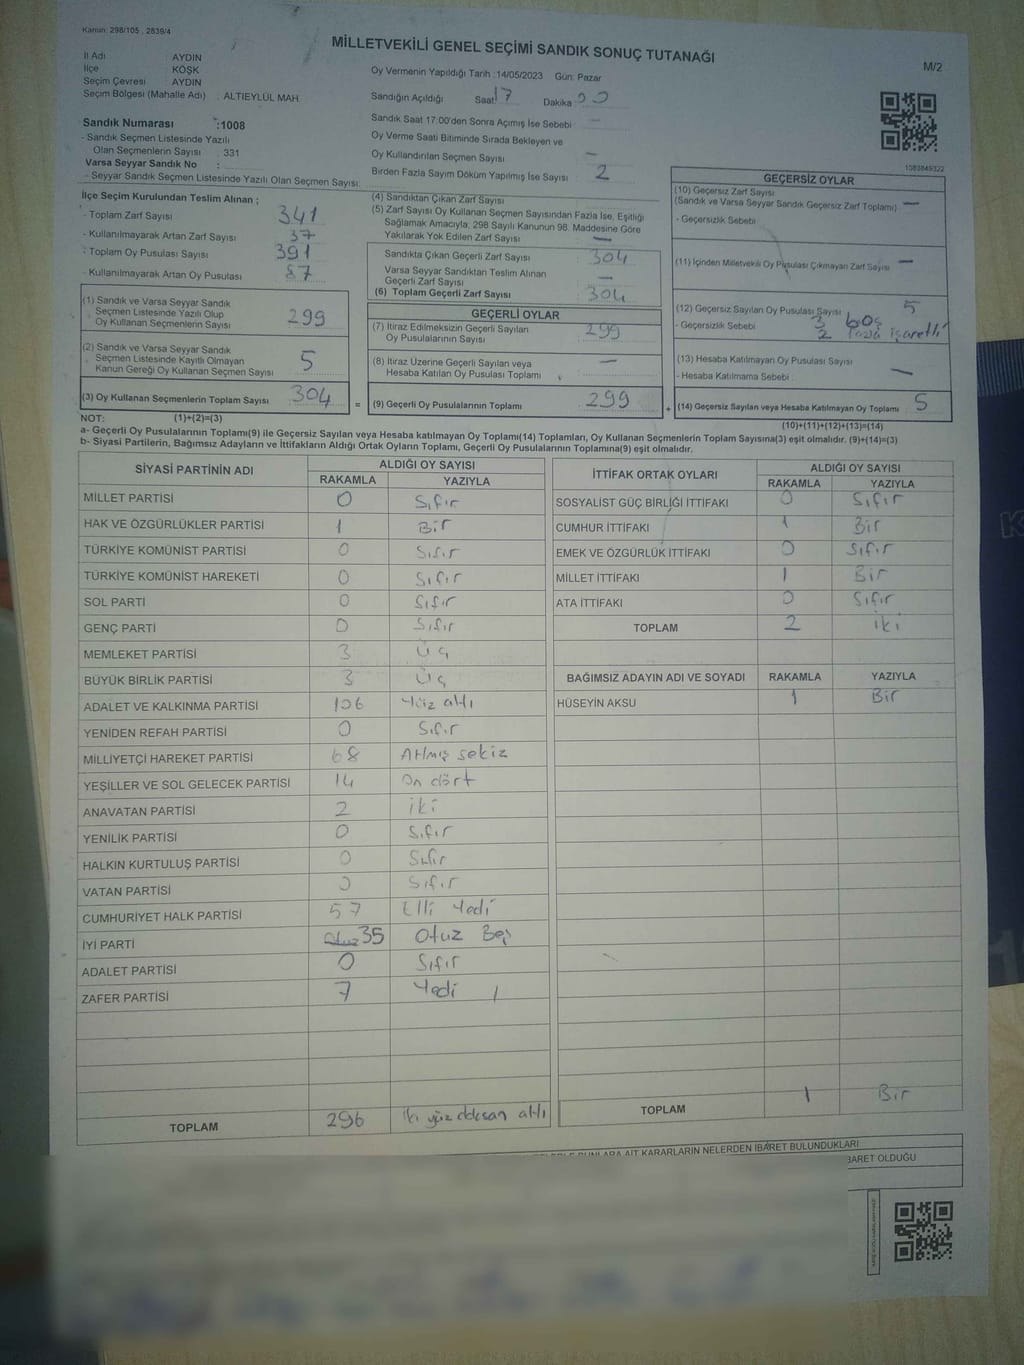 Kanun: 298/105 , 2839/4
MİLLETVEKİLİ GENEL SEÇİMİ SANDIK SONUÇ TUTANAĞI
M/2
İl Adı AYDIN
İlçe KÖŞK
Seçim Çevresi AYDIN
Seçim Bölgesi (Mahalle Adı) : ALTIEYLÜL MAH.
Oy Vermenin Yapıldığı Tarih :14/05/2023 Gün: Pazar
Sandığın Açıldığı Saat 17 Dakika 00
Sandık Saat 17:00'den Sonra Açımış İse Sebebi : —
Oy Verme Saati Bitiminde Sırada Bekleyen ve
Oy Kullandırılan Seçmen Sayısı —
Birden Fazla Sayım Döküm Yapılmış İse Sayısı 2
Sandık Numarası :1008
- Sandık Seçmen Listesinde Yazılı
Olan Seçmenlerin Sayısı : 331
Varsa Seyyar Sandık No :
- Seyyar Sandık Seçmen Listesinde Yazılı Olan Seçmen Sayısı:
1083849322
İlçe Seçim Kurulundan Teslim Alınan ;
- Toplam Zarf Sayısı 341
- Kullanılmayarak Artan Zarf Sayısı 37
- Toplam Oy Pusulası Sayısı 391
- Kullanılmayarak Artan Oy Pusulası 87
(1) Sandık ve Varsa Seyyar Sandık
Seçmen Listesinde Yazılı Olup
Oy Kullanan Seçmenlerin Sayısı 299
(2) Sandık ve Varsa Seyyar Sandık
Seçmen Listesinde Kayıtlı Olmayan
Kanun Gereği Oy Kullanan Seçmen Sayısı 5
(3) Oy Kullanan Seçmenlerin Toplam Sayısı 304 =
(4) Sandıktan Çıkan Zarf Sayısı
(5) Zarf Sayısı Oy Kullanan Seçmen Sayısından Fazla İse, Eşitliği
Sağlamak Amacıyla, 298 Sayılı Kanunun 98. Maddesine Göre
Yakılarak Yok Edilen Zarf Sayısı —
Sandıkta Çıkan Geçerli Zarf Sayısı 304
Varsa Seyyar Sandıktan Teslim Alınan
Geçerli Zarf Sayısı —
(6) Toplam Geçerli Zarf Sayısı 304
GEÇERLİ OYLAR
(7) İtiraz Edilmeksizin Geçerli Sayılan
Oy Pusulalarının Sayısı 299
(8) İtiraz Üzerine Geçerli Sayılan veya
Hesaba Katılan Oy Pusulası Toplamı —
(9) Geçerli Oy Pusulalarının Toplamı 299 +
GEÇERSİZ OYLAR
(10) Geçersiz Zarf Sayısı
(Sandık ve Varsa Seyyar Sandık Geçersiz Zarf Toplamı) —
- Geçersizlik Sebebi :
(11) İçinden Milletvekili Oy Pusulası Çıkmayan Zarf Sayısı —
(12) Geçersiz Sayılan Oy Pusulası Sayısı 5
- Geçersizlik Sebebi : 3 boş
2 fazla işaretli
(13) Hesaba Katılmayan Oy Pusulası Sayısı
- Hesaba Katılmama Sebebi : —
(14) Geçersiz Sayılan veya Hesaba Katılmayan Oy Toplamı 5
NOT: (1)+(2)=(3)
(10)+(11)+(12)+(13)=(14)
a- Geçerli Oy Pusulalarının Toplamı(9) ile Geçersiz Sayılan veya Hesaba katılmayan Oy Toplamı(14) Toplamları, Oy Kullanan Seçmenlerin Toplam Sayısına(3) eşit olmalıdır. (9)+(14)=(3)
b- Siyasi Partilerin, Bağımsız Adayların ve İttifakların Aldığı Ortak Oyların Toplamı, Geçerli Oy Pusulalarının Toplamına(9) eşit olmalıdır.
SİYASİ PARTİNİN ADI ALDIĞI OY SAYISI
RAKAMLA YAZIYLA
MİLLET PARTİSİ 0 Sıfır
HAK VE ÖZGÜRLÜKLER PARTİSİ 1 Bir
TÜRKİYE KOMÜNİST PARTİSİ 0 Sıfır
TÜRKİYE KOMÜNİST HAREKETİ 0 Sıfır
SOL PARTİ 0 Sıfır
GENÇ PARTİ 0 Sıfır
MEMLEKET PARTİSİ 3 Üç
BÜYÜK BİRLİK PARTİSİ 3 Üç
ADALET VE KALKINMA PARTİSİ 106 Yüz altı
YENİDEN REFAH PARTİSİ 0 Sıfır
MİLLİYETÇİ HAREKET PARTİSİ 68 Atmış sekiz
YEŞİLLER VE SOL GELECEK PARTİSİ 14 On dört
ANAVATAN PARTİSİ 2 iki
YENİLİK PARTİSİ 0 Sıfır
HALKIN KURTULUŞ PARTİSİ 0 Sıfır
VATAN PARTİSİ 0 Sıfır
CUMHURİYET HALK PARTİSİ 57 Elli Yedi
İYİ PARTİ Otuz 35 Otuz Beş
ADALET PARTİSİ 0 Sıfır
ZAFER PARTİSİ 7 Yedi
TOPLAM 296 iki yüz doksan altı
İTTİFAK ORTAK OYLARI ALDIĞI OY SAYISI
RAKAMLA YAZIYLA
SOSYALİST GÜÇ BİRLİĞİ İTTİFAKI 0 Sıfır
CUMHUR İTTİFAKI 1 Bir
EMEK VE ÖZGÜRLÜK İTTİFAKI 0 Sıfır
MİLLET İTTİFAKI 1 Bir
ATA İTTİFAKI 0 Sıfır
TOPLAM 2 iki
BAĞIMSIZ ADAYIN ADI VE SOYADI RAKAMLA YAZIYLA
HÜSEYİN AKSU 1 Bir
TOPLAM 1 Bir
AİT KARARLARIN NELERDEN İBARET BULUNDUKLARI
BARET OLDUĞU